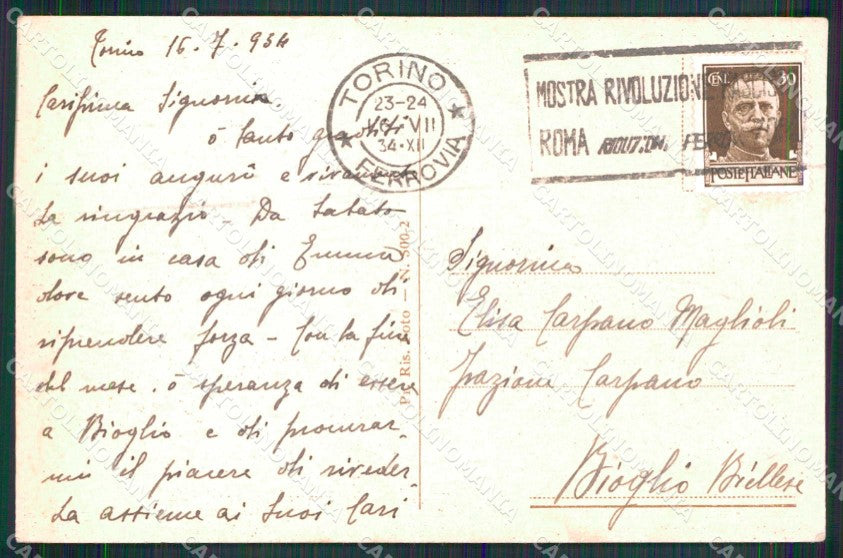 Torino 16.7.934
Carissima Signorina,
ò tanto gradito
i suoi auguri e vivamente
La ringrazio. Da Sabato
sono in casa di Emma
dove sento ogni giorno di
riprendere forza - Con la fine
del mese ò speranza di essere
a Bioglio e di procurar-
mi il piacere di riveder-
La assieme ai Suoi Cari
TORINO
23-24
VII
34·XII
FERROVIA
MOSTRA RIVOLUZIONE
ROMA
CENT. 30
POSTE ITALIANE
Ris. Foto — N. 500-2
Signorina
Elisa Carpano Maglioli
frazione Carpano
Bioglio Biellese
CARTOLINOMANIA